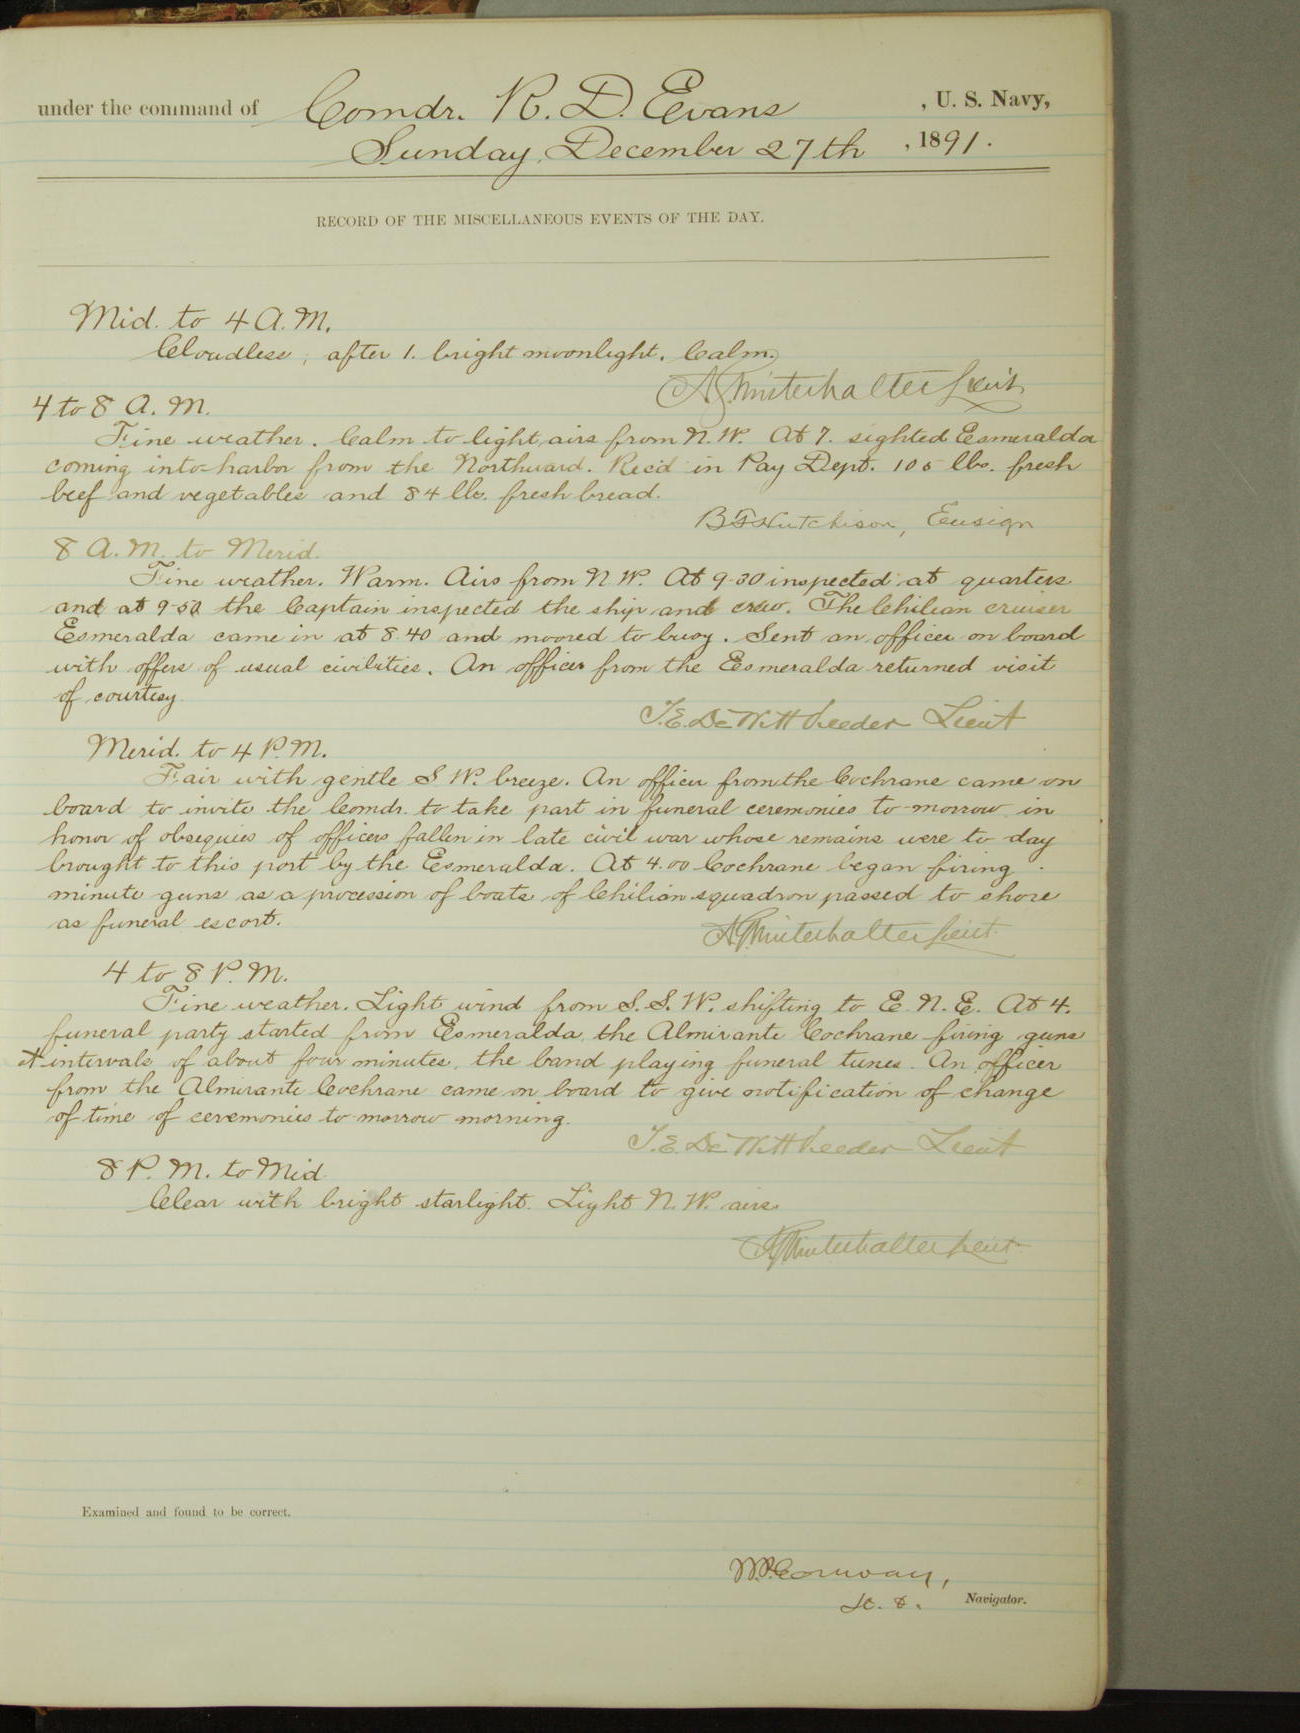 under the command of Comdr. R. D. Evans , U. S. Navy,
Sunday, December 27th , 1891.
RECORD OF THE MISCELLANEOUS EVENTS OF THE DAY.
Mid. to 4 A.M.
Cloudless, after 1. bright moonlight. Calm.
A.G. Winterhalter Lieut.
4 to 8 A.M.
Fine weather. Calm to light airs from N.W. At 7. sighted Esmeralda
coming into harbor from the Northward. Rec'd in Pay Dept. 105 lbs. fresh
beef and vegetables and 84 lbs. fresh bread.
B F Hutchison, Ensign
8 A.M. to Merid.
Fine weather. Warm. Airs from N.W. At 9-30 inspected at quarters
and at 9-50 the Captain inspected the ship and crew. The Chilean cruiser
Esmeralda came in at 8.40 and moored to buoy. Sent an officer on board
with offers of usual civilities. An officer from the Esmeralda returned visit
of courtesy.
T.E. DeWitt Veeder Lieut
Merid. to 4 P.M.
Fair with gentle S W. breeze. An officer from the Cochrane came on
board to invite the Comdr. to take part in funeral ceremonies to-morrow in
honor of obsequies of officers fallen in late civil war whose remains were to day
brought to this port by the Esmeralda. At 4.00 Cochrane began firing
minute guns as a procession of boats of Chilian squadron passed to shore
as funeral escort.
A.G. Winterhalter Lieut.
4 to 8 P.M.
Fine weather. Light wind from S.S.W. shifting to E.N.E. At 4.
funeral party started from Esmeralda, the Almirante Cochrane firing guns
at intervals of about four minutes, the band playing funeral tunes. An officer
from the Almirante Cochrane came on board to give notification of change
of time of ceremonies to-morrow morning.
T.E. DeWitt Veeder Lieut
8 P.M. to Mid
Clear with bright starlight. Light N.W. airs.
A.G. Winterhalter Lieut.
Examined and found to be correct.
W.P. Conway,
Navigator.